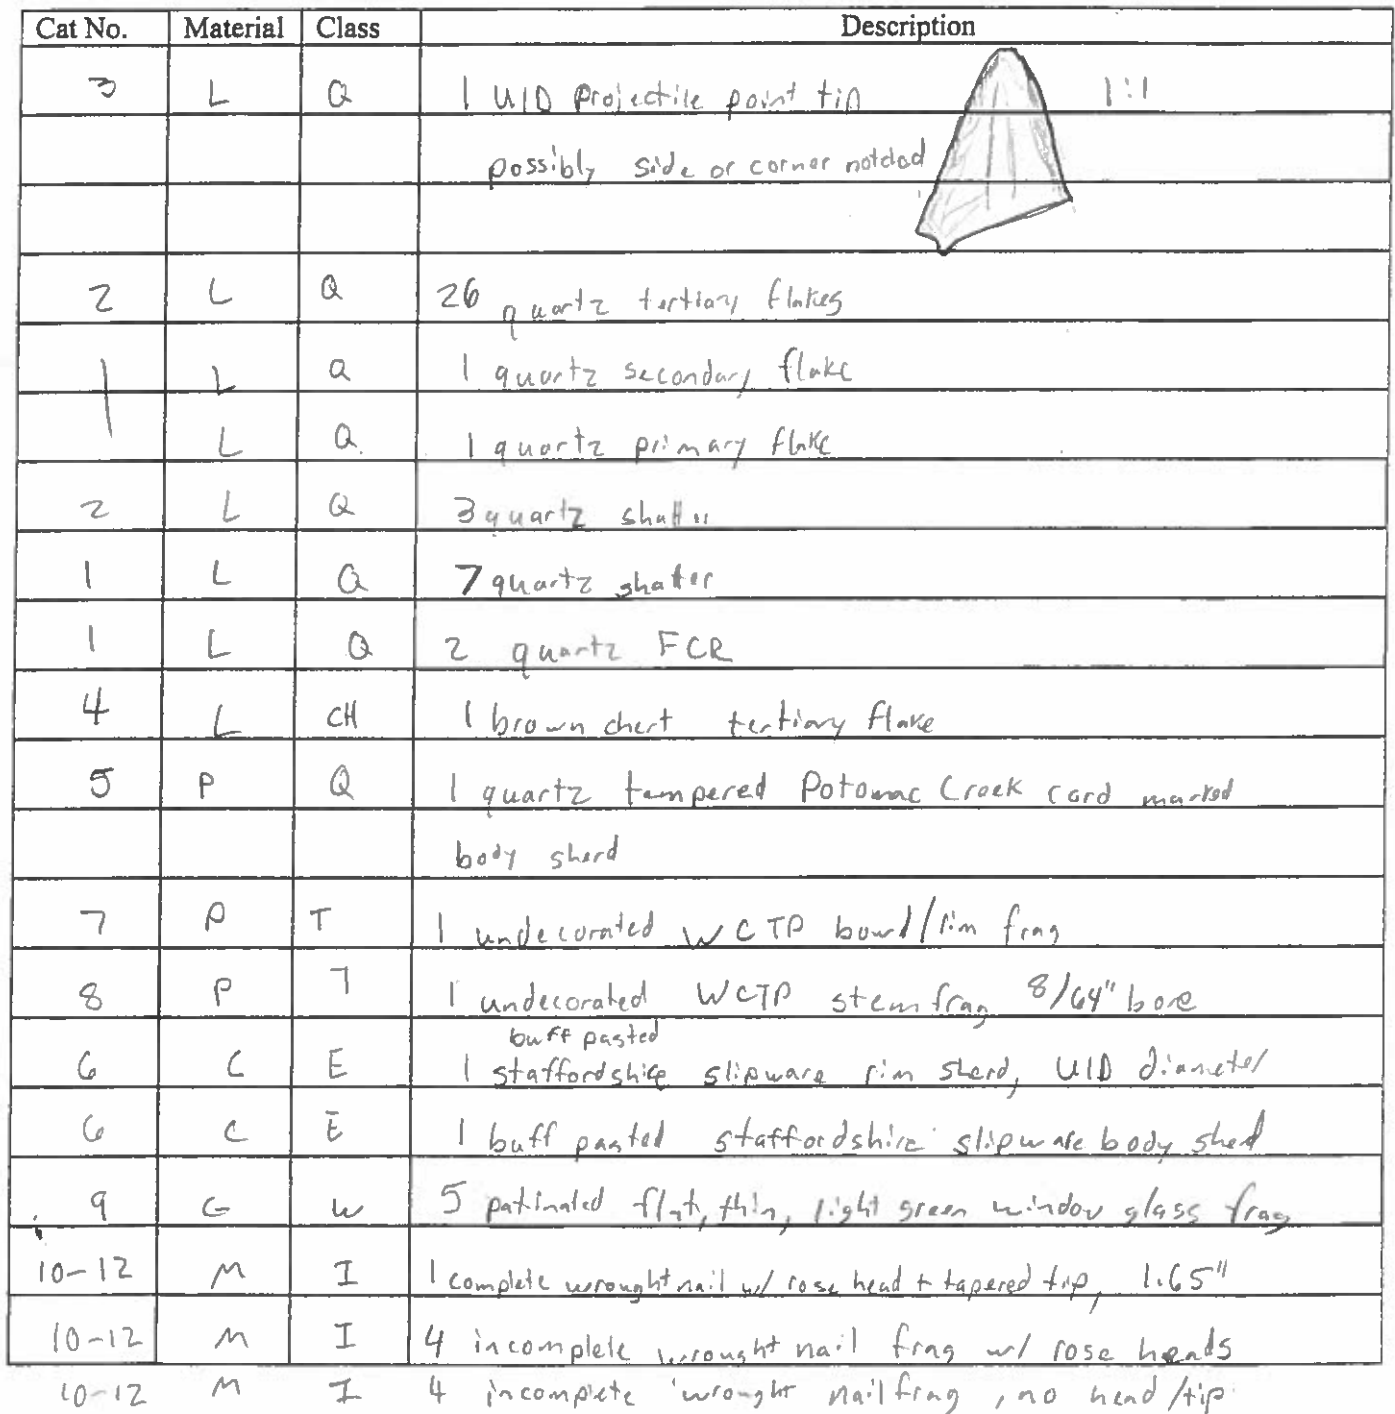 Cat No. Material Class Description
3 L Q 1 UID projectile point tip 1:1
possibly side or corner notched
2 L Q 26 quartz tertiary flakes
1 L Q 1 quartz secondary flake
L Q 1 quartz primary flake
2 L Q 3 quartz shatter
1 L Q 7 quartz shatter
1 L Q 2 quartz FCR
4 L CH 1 brown chert tertiary flake
5 P Q 1 quartz tempered Potomac Creek cord marked
body sherd
7 P T 1 undecorated WCTP bowl/rim frag
8 P T 1 undecorated WCTP stem frag 8/64" bore
buff pasted
6 C E 1 staffordshire slipware rim sherd, UID diameter
6 C E 1 buff pasted staffordshire slipware body sherd
9 G W 5 patinated flat, thin, light green window glass frag
10-12 M I 1 complete wrought nail w/ rose head + tapered tip, 1.65"
10-12 M I 4 incomplete wrought nail frag w/ rose heads
10-12 M I 4 incomplete wrought nail frag, no head/tip